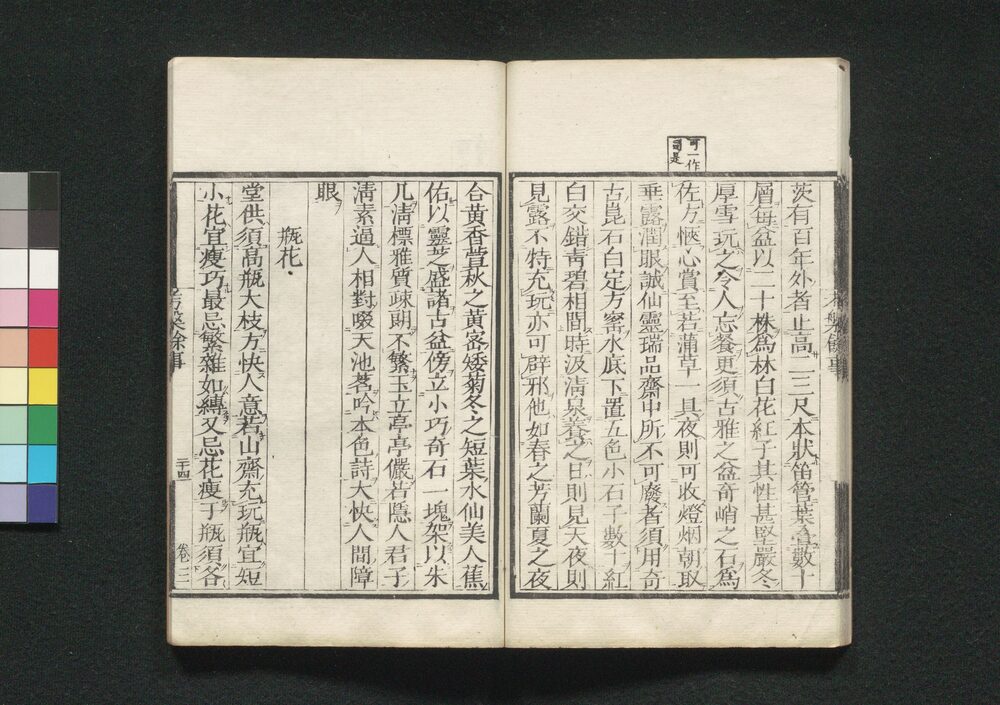 可一作
司是
茨有百年外者止高二三尺本狀笛管葉疊數十
層每盆以二十株為林白花紅子其性甚堅嚴冬
厚雪玩之令人忘餐更須古雅之盆奇峭之石為
佐方愜心賞至若蒲草一具夜則可收燈烟朝取
垂露潤眼誠仙靈瑞品齋中所不可廢者須用奇
古崑石白定方窰水底下置五色小石子數十紅
白交錯青碧相間時汲清泉養之日則見天夜則
見露不特充玩亦可辟邪他如春之芳蘭夏之夜
合黃香萱秋之黃蜜矮菊冬之短葉水仙美人蕉
佑以靈芝盛諸古盆傍立小巧奇石一塊架以朱
几清標雅質疎朗不繁玉立亭亭儼若隱人君子
清素逼人相對啜天池茗吟本色詩大快人間障
眼
瓶花
堂供須高瓶大枝方快人意若山齋充玩瓶宜短
小花宜瘦巧最忌繁雜如縛又忌花瘦于瓶須各
考槃餘事
二十四
卷三